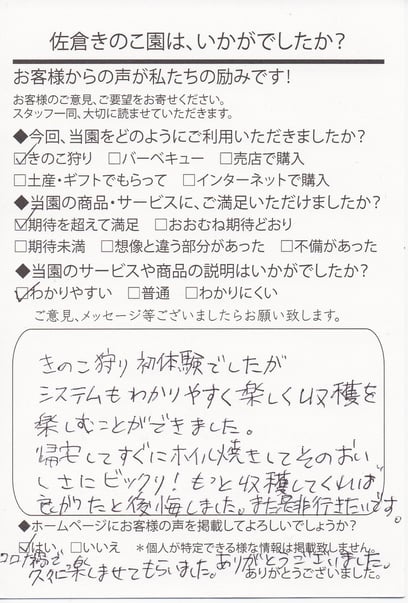 佐倉きのこ園は、いかがでしたか？
お客様からの声が私たちの励みです！
お客様のご意見、ご要望をお寄せください。
スタッフ一同、大切に読ませていただきます。
◆今回、当園をどのようにご利用いただきましたか？
☑きのこ狩り □バーベキュー □売店で購入
□土産・ギフトでもらって □インターネットで購入
◆当園の商品・サービスに、ご満足いただけましたか？
☑期待を超えて満足 □おおむね期待どおり
□期待未満 □想像と違う部分があった □不備があった
◆当園のサービスや商品の説明はいかがでしたか？
☑わかりやすい □普通 □わかりにくい
ご意見、メッセージ等ございましたらお願い致します。
きのこ狩り初体験でしたが
システムもわかりやすく楽しく収穫を
楽しむことができました。
帰宅してすぐにホイル焼きしてそのおい
しさにビックリ！もっと収穫してくれば
良かったと後悔しました。また是非行きたいです。
◆ホームページにお客様の声を掲載してよろしいでしょうか？
☑はい □いいえ ＊個人が特定できる様な情報は掲載致しません。
コロナ禍で
久々に楽しませてもらいました。ありがとうございました。
ありがとうございました。